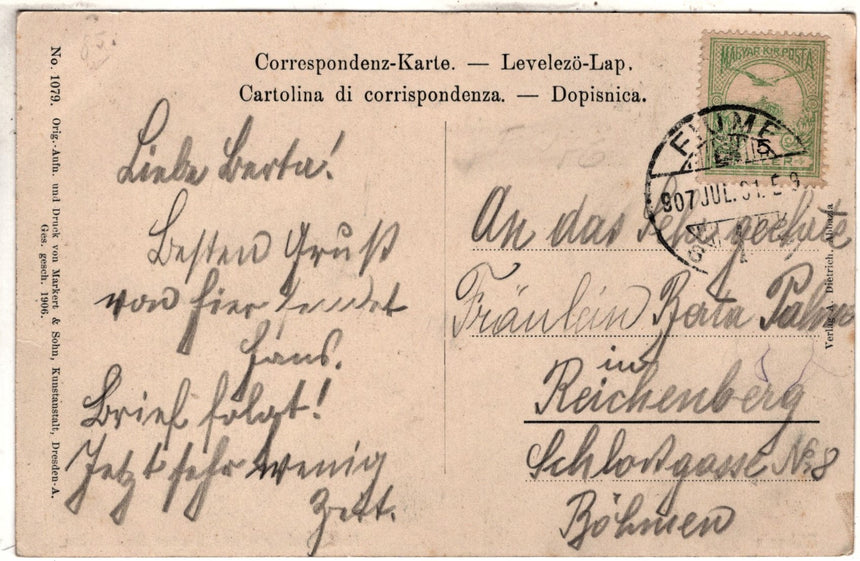 Correspondenz-Karte. — Levelező-Lap.
Cartolina di corrispondenza. — Dopisnica.
No. 1079. Orig.-Aufn. und Druck von Markert & Sohn, Kunstanstalt, Dresden-A.
Ges. gesch. 1906.
Liebe Berta!
Besten Gruß
von hier sendet
Hans.
Brief folgt!
Jetzt sehr wenig
Zeit.
MAGYAR KIR. POSTA
FIUME
907 JUL. 31.
An das Sehr geehrte
Fräulein Berta Palme
in
Reichenberg
Schloßgasse No. 8
Böhmen
Verlag A. Dietrich, Abbazia